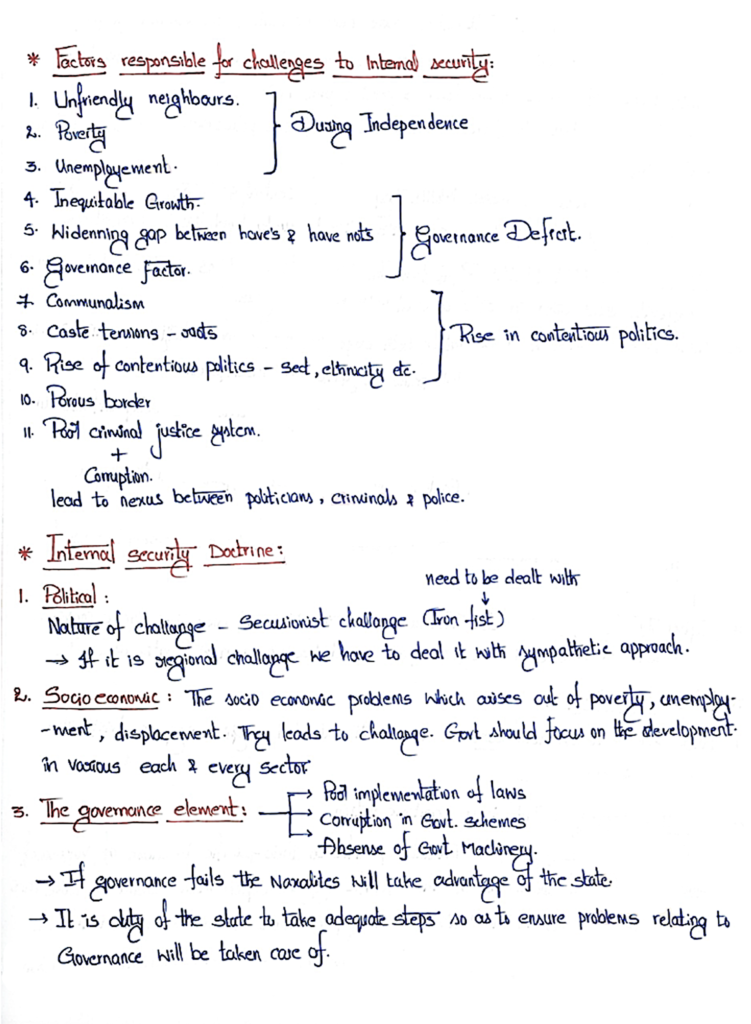 * Factors responsible for challenges to Internal security:
1. Unfriendly neighbours.
2. Poverty
3. Unemployement.
During Independence
4. Inequitable Growth.
5. Widenning gap between have's & have nots
6. Governance Factor.
Governance Deficit.
7. Communalism
8. Caste tensions -
9. Rise of contentious politics - sect, ethnicity etc.
Rise in contentious politics.
10. Porous border
11. Poor criminal justice system.
+
Corruption.
lead to nexus between politicians, criminals & police.
* Internal security Doctrine:
need to be dealt with
↓
1. Political:
Nature of challange - Secusionist challange (Iron fist)
→ If it is regional challange we have to deal it with sympathetic approach.
2. Socio economic: The socio economic problems which arises out of poverty, unemploy-
-ment, displacement. They leads to challange. Govt should focus on the development
in various each & every sector
3. The governance element: → Poor implementation of laws
→ Corruption in Govt. schemes
→ Absense of Govt Machinery.
→ If governance fails the Naxalites will take advantage of the state.
→ It is duty of the state to take adequate steps so as to ensure problems relating to
Governance will be taken care of.